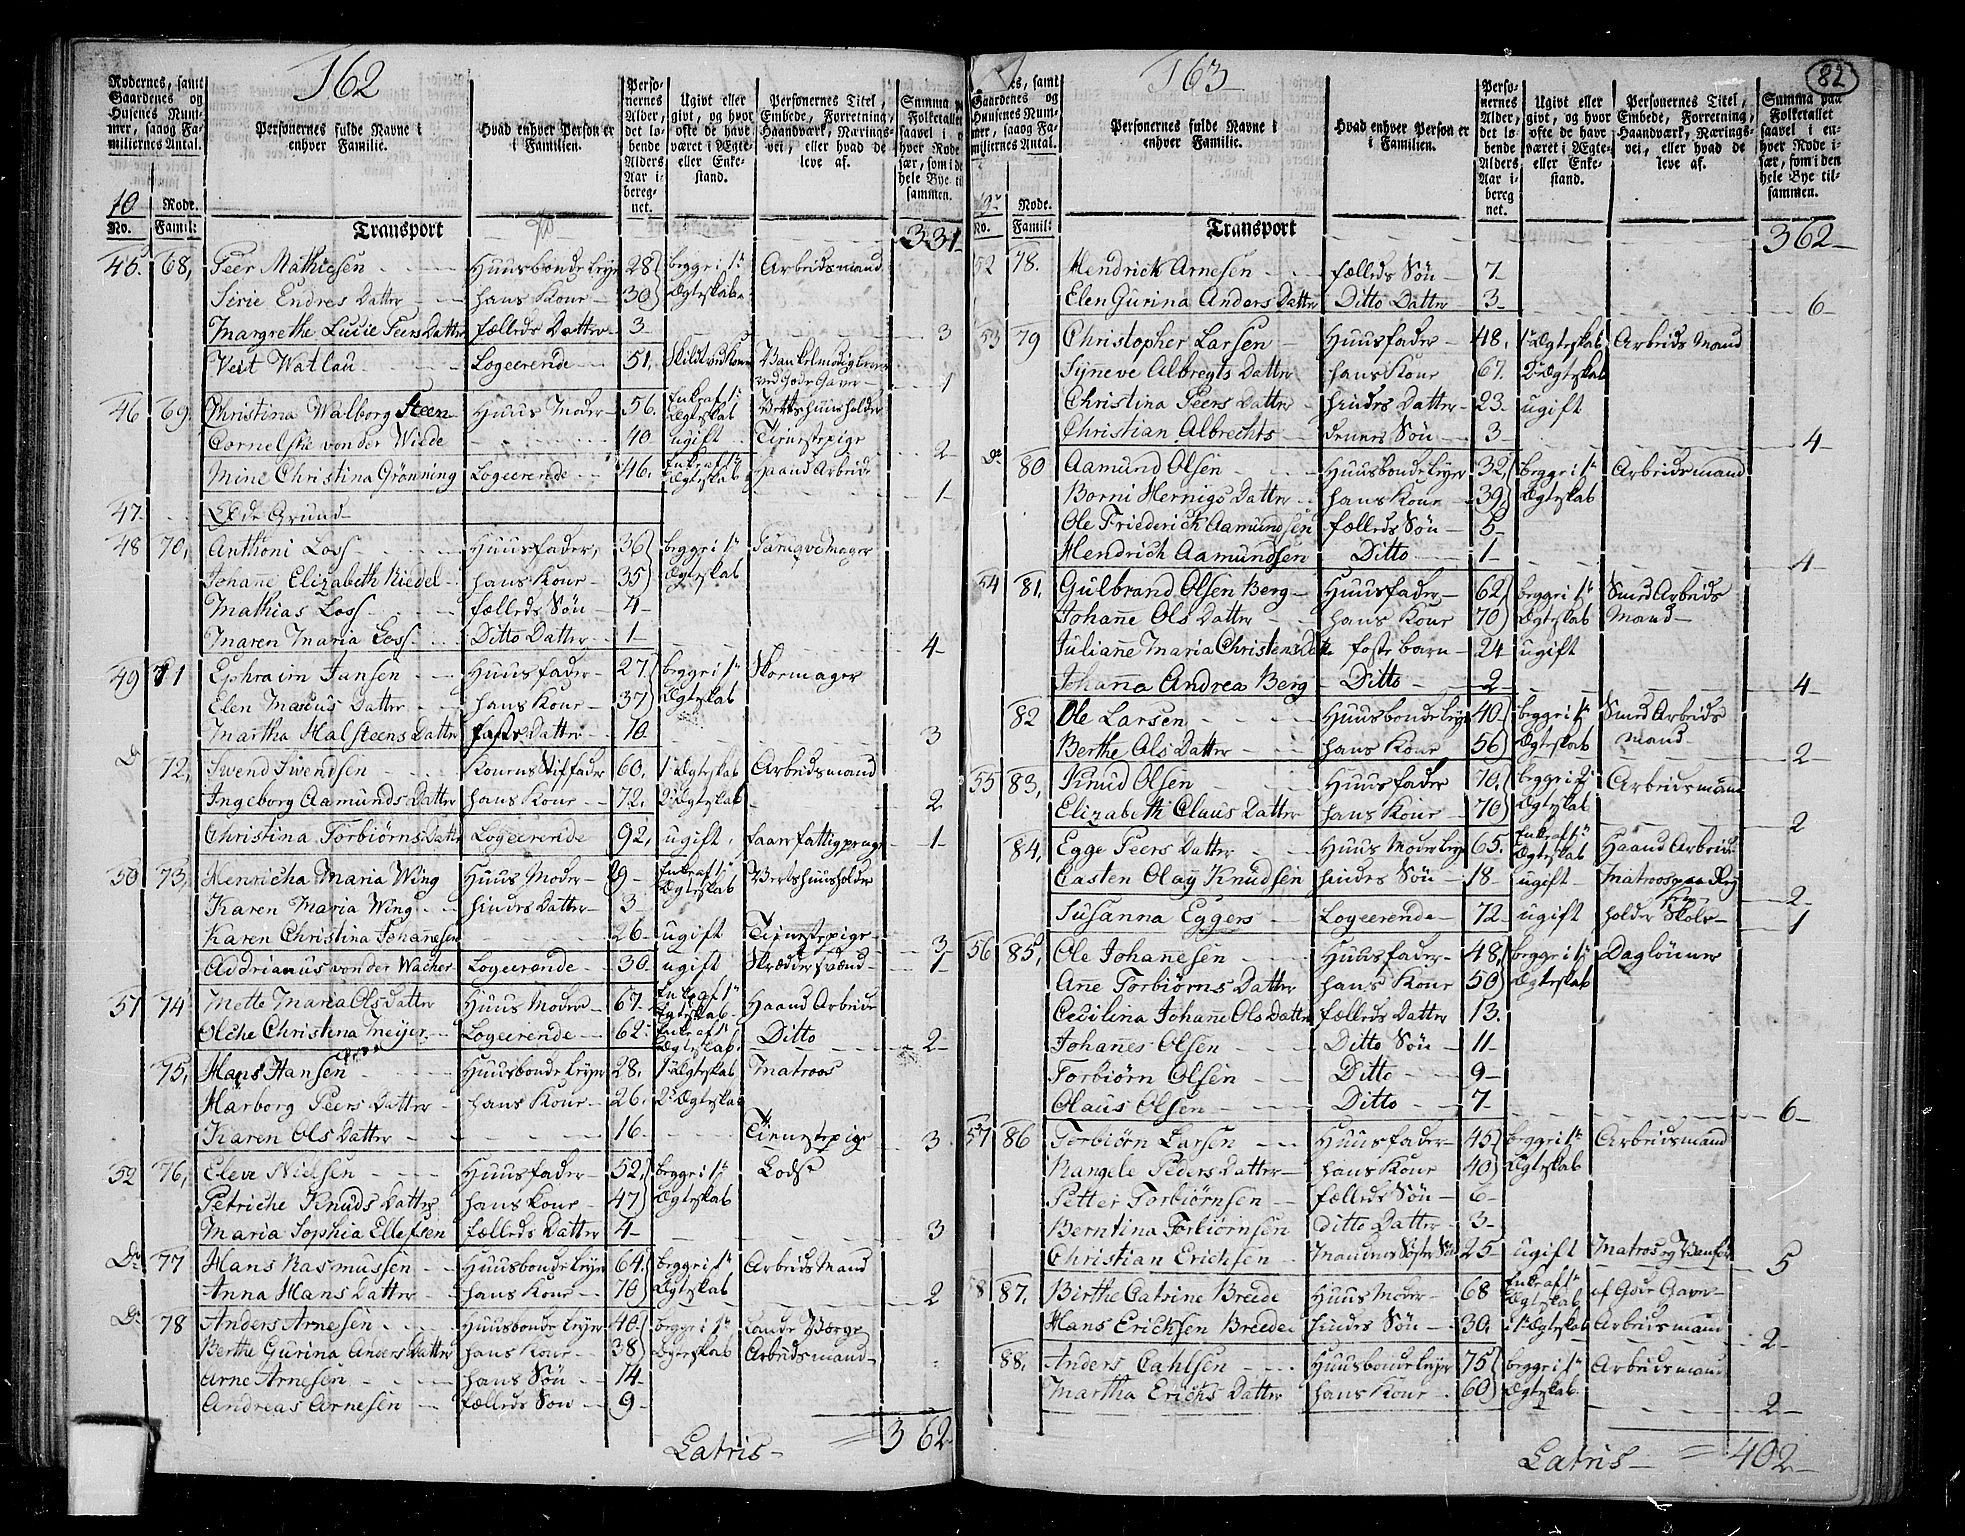 162
Rodernes, samt Gaardenes og Husenes Nummer, saaog Familiernes Antal.
Personernes fulde Navne i enhver Familie.
Hvad enhver Person er i Familien.
Personernes Alder, det løbende Alders Aar iberegnet.
Ugivt eller givt, og hvor ofte de have været i Ægte- eller Enkestand.
Personernes Titel, Embede, Forretning, Haandværk, Næringsvei, eller hvad de leve af.
Summa paa Folketallet saavel i enhver Rode især, som i den hele Bye tilsammen.
10 Rode.
No. Famil: Transport 331
45 68, Peer Mathiesen Huusbonde Leyer 28 begge i 1te Arbeidsmand
Sirie Endres Datter hans Kone 30 Ægteskab
Margrethe Lucie Peers Datter fælleds Datter 3 3
Veit Watlau Logeerende 51, 1
46 69 Christina Walborg Steen Huus Moder 56. Enke af 1te Ægteskab Vertshuusholder
Cornelske von der Wiede 40 ugift Tienestepige 2
Mine Christina Grønning Logeerende 46. Enke af 1te Ægteskab Haand Arbeide 1
47 Øde Grund
48 70, Anthoni Loss Huusfader, 36 begge i 1te
Johane Elizabeth Riedel hans Kone 35 Ægteskab
Mathias Loss fælleds Søn 4
Maren Maria Loss Ditto Datter 1 4
49 71 Ephraim Jensen Huusfader 27 begge i 1te Skomager
Elen Marcus Datter hans Kone 37 Ægteskab
Martha Halsteens Datter foster Datter 10 3
Do 72, Swend Swendsen Konens Stiffader 60. 1te Ægteskab Arbeidsmand
Ingeborg Aamunds Datter hans Kone 72. 2t Ægteskab 2
Christina Torbiørns Datter Logeerende 92, ugift, faar fattigpenge 1
50 73, Henricha Maria Wing Huus Moder 29 Enke af 1te Ægteskab Vertshuusholder
Karen Maria Wing hindes Datter 3
Karen Christina Johannesen 26. ugift Tienestepige 3
Addrianus von der Wacher Logeerende 30 ugift Skræder svænd 1
51 74 Mette Maria Ols Datter Huus Moder 67. Enke af 1te Ægteskab Haand Arbeide
Olche Christina Meijer Logeerende 62 Enke af 1te Ægteskab Ditto 2
75, Hans Hansen Huusbonde Leyer 28, 1te Ægteskab Matroos
Marborg Peers Datter hans Kone 26. 2t Ægteskab
Karen Ols Datter 16. Tienestepige 3
52 76, Eleve Nielsen Huusfader 52, begge i 1te Lods
Petriche Knuds Datter hans Kone 47 Ægteskab
Maria Sophia Ellefsen fælleds Datter 4 3
Do 77 Hans Rasmussen Huusbonde Leyer 64. begge i 1te Arbeids Mand
Anna Hans Datter hans Kone 70 Ægteskab 2
Do 78 Anders Arnesen Huusbonde Leyer 40 begge i 1te Lande Værge
Berthe Gurina Anders Datter hans Kone 38 Ægteskab Arbeidsmand
Arne Arnesen hans Søn 14
Andreas Arnesen fælleds Søn 9
Latris 362
82
163
samt Gaardenes og Husenes Nummer, saaog Familiernes Antal.
Personernes fulde Navne i enhver Familie.
Hvad enhver Person er i Familien.
Personernes Alder, det løbende Alders Aar iberegnet.
Ugivt eller givt, og hvor ofte de have været i Ægte- eller Enkestand.
Personernes Titel, Embede, Forretning, Haandværk, Næringsvei, eller hvad de leve af.
Summa paa Folketallet saavel i enhver Rode især, som i den hele Bye tilsammen.
Rode.
No. Famil: Transport 362
52 78. Hendrick Arnesen fælleds Søn 7
Elen Gurina Anders Datter Ditto Datter 3 6
53 79 Christopher Larsen Huusfader 48, 1te Ægteskab Arbeids Mand
Syneve Albregts Datter hans Kone 67. 2t Ægteskab
Christina Peers Datter hindes Datter 23. ugift
Christian Albrechts dennes Søn 3 4
Do 80 Aamund Olsen Huusbonde Leyer 32, begge i 1te Arbeidsmand
Borni Hernigs Datter hans Kone 39 Ægteskab
Ole Friederick Aamundsen fælleds Søn 5
Hendrich Aamundsen Ditto 1 4
54 81. Gulbrand Olsen Berg Huusfader 62 begge i 1te Smed Arbeids
Johanne Ols Datter hans Kone 70 Ægteskab Mand
Julianne Maria Christens Datter foste barn 24 ugift
Johanna Andrea Berg Ditto 2 4
82 Ole Larsen Huusbonde Leyer 40 begge i 1te Smed Arbeids
Berthe Ols Datter hans Kone 56 Ægteskab mand 2
55 83, Knud Olsen Huusfader 70, begge i 2t Arbeidsmand
Elizabeth Claus Datter hans Kone 70 Ægteskab 2
84, Egge Peers Datter Huus Moder Leyer 65. Enke af 1te Ægteskab Haand Arbeide
Casten Olay Knudsen hindes Søn 18 ugift Matroos paa Rey 2
Susanna Eggers Logeerende 72 ugift holder Skole 1
56 85, Ole Johannesen Huusfader 48, begge i 1te Daglønner
Ane Torbiørns Datter hans Kone 50 Ægteskab
Cecilina Johanne Ols Datter fælleds Datter 13.
Johannes Olsen Ditto Søn 11
Torbiørn Olsen Ditto 9
Claus Olsen Ditto 7 6
57 86 Torbiørn Larsen Huusfader 45 begge i 1te Arbeidsmand
Rangele Peders Datter hans Kone 40 Ægteskab
Petter Torbiørnsen fælleds Søn 6
Berntina Torbiørnsen ditto Datter 3
Christian Erichsen Mandens Søster Søn 25 ugift Matros 5
58 87. Birthe Catrine Breede Huus Moder 68 Enke af 1te Ægteskab af Gode Gaver
Hans Ericksen Breede hindes Søn 30. i 1te Ægteskab Arbeidsmand 2
88. Anders Cahlsen Huusbonde Leyer 75 begge i 1te Arbeidsmand
Martha Erichs Datter hans Kone 60 Ægteskab 2
Latris 402